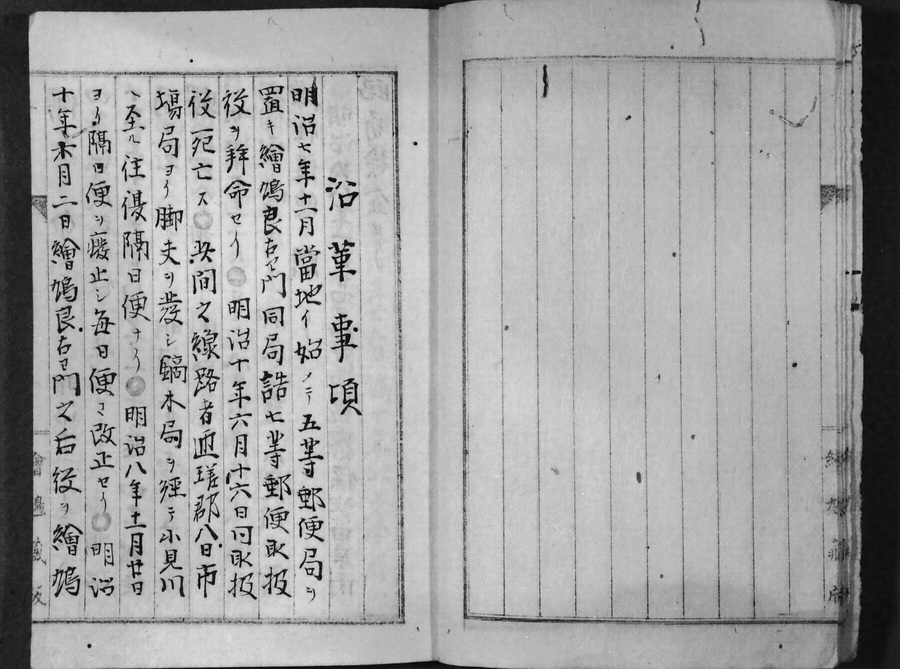 沿革事項
明治七年十一月當地イ始ノテ五等郵便局ヲ
置キ繪鳩良右ヱ門同局詰七等郵便取扱
役ヲ拜命セリ○明治十年六月十六日同取扱
役死亡ス○此間之線路者匝瑳郡八日市
場局ヨリ脚夫ヲ發シ鏑木局ヲ經テ小見川
ヘ至ル往復隔日便ナリ○明治八年十一月廿日
ヨリ隔日便ヲ癈止シ毎日便ニ改正セリ○明治
十年六月二日繪鳩良右ヱ門之后役ヲ繪鳩